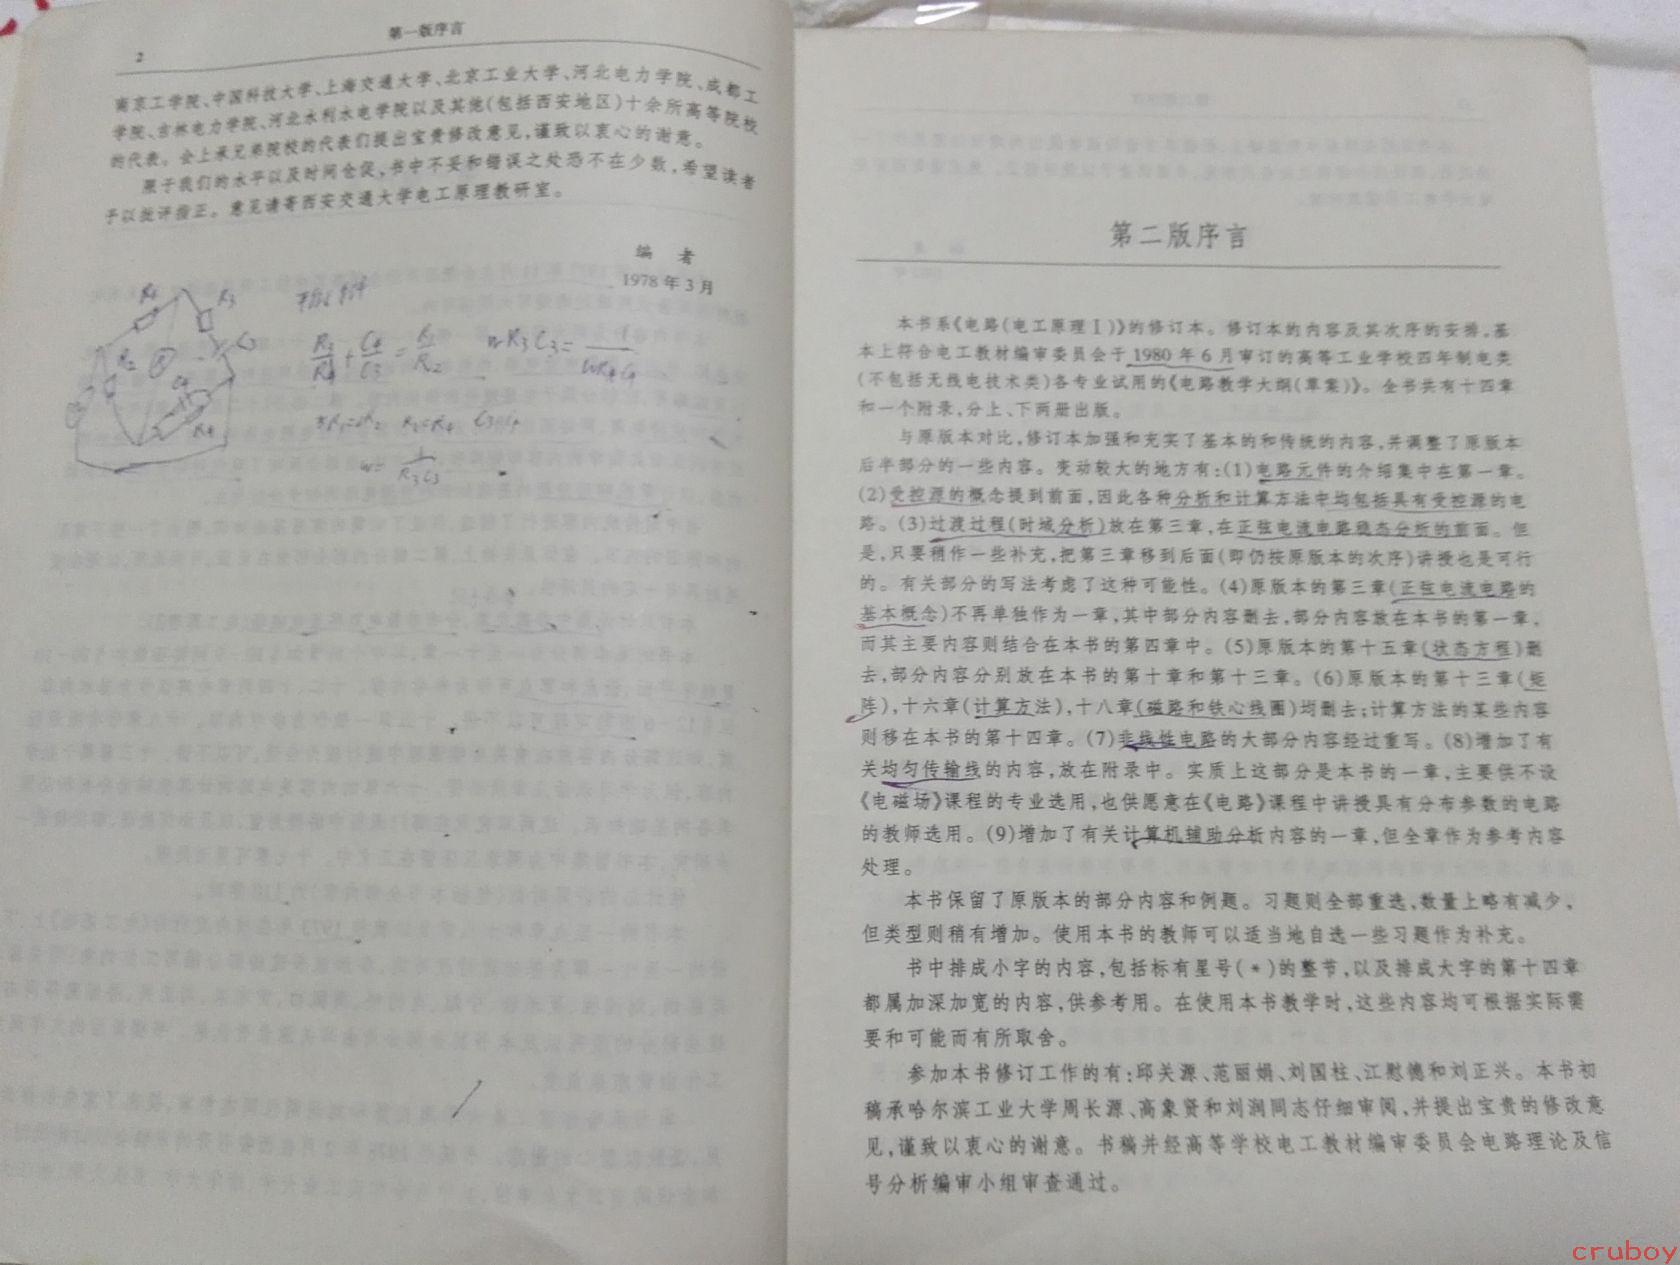 2
第一版序言
南京工学院、中国科技大学、上海交通大学、北京工业大学、河北电力学院、成都工
学院、吉林电力学院、河北水利水电学院以及其他(包括西安地区)十余所高等院校
的代表。会上承兄弟院校的代表们提出宝贵修改意见,谨致以衷心的谢意。
限于我们的水平以及时间仓促,书中不妥和错误之处恐不在少数,希望读者
予以批评指正。意见请寄西安交通大学电工原理教研室。
编 者
1978 年 3 月
R3
R2
第二版序言
本书系《电路(电工原理Ⅰ)》的修订本。修订本的内容及其次序的安排,基
本上符合电工教材编审委员会于 1980 年 6 月审订的高等工业学校四年制电类
(不包括无线电技术类)各专业试用的《电路教学大纲(草案)》。全书共有十四章
和一个附录,分上、下两册出版。
与原版本对比,修订本加强和充实了基本的和传统的内容,并调整了原版本
后半部分的一些内容。变动较大的地方有:(1)电路元件的介绍集中在第一章。
(2)受控源的概念提到前面,因此各种分析和计算方法中均包括具有受控源的电
路。(3)过渡过程(时域分析)放在第三章,在正弦电流电路稳态分析的前面。但
是,只要稍作一些补充,把第三章移到后面(即仍按原版本的次序)讲授也是可行
的。有关部分的写法考虑了这种可能性。(4)原版本的第三章(正弦电流电路的
基本概念)不再单独作为一章,其中部分内容删去,部分内容放在本书的第一章,
而其主要内容则结合在本书的第四章中。(5)原版本的第十五章(状态方程)删
去,部分内容分别放在本书的第十章和第十三章。(6)原版本的第十三章(矩
阵),十六章(计算方法),十八章(磁路和铁心线圈)均删去;计算方法的某些内容
则移在本书的第十四章。(7)非线性电路的大部分内容经过重写。(8)增加了有
关均匀传输线的内容,放在附录中。实质上这部分是本书的一章,主要供不设
《电磁场》课程的专业选用,也供愿意在《电路》课程中讲授具有分布参数的电路
的教师选用。(9)增加了有关计算机辅助分析内容的一章,但全章作为参考内容
处理。
本书保留了原版本的部分内容和例题。习题则全部重选,数量上略有减少,
但类型则稍有增加。使用本书的教师可以适当地自选一些习题作为补充。
书中排成小字的内容,包括标有星号(*)的整节,以及排成大字的第十四章
都属加深加宽的内容,供参考用。在使用本书教学时,这些内容均可根据实际需
要和可能而有所取舍。
参加本书修订工作的有:邱关源、范丽娟、刘国柱、江慰德和刘正兴。本书初
稿承哈尔滨工业大学周长源、高象贤和刘润同志仔细审阅,并提出宝贵的修改意
见,谨致以衷心的谢意。书稿并经高等学校电工教材编审委员会电路理论及信
号分析编审小组审查通过。
cruboy